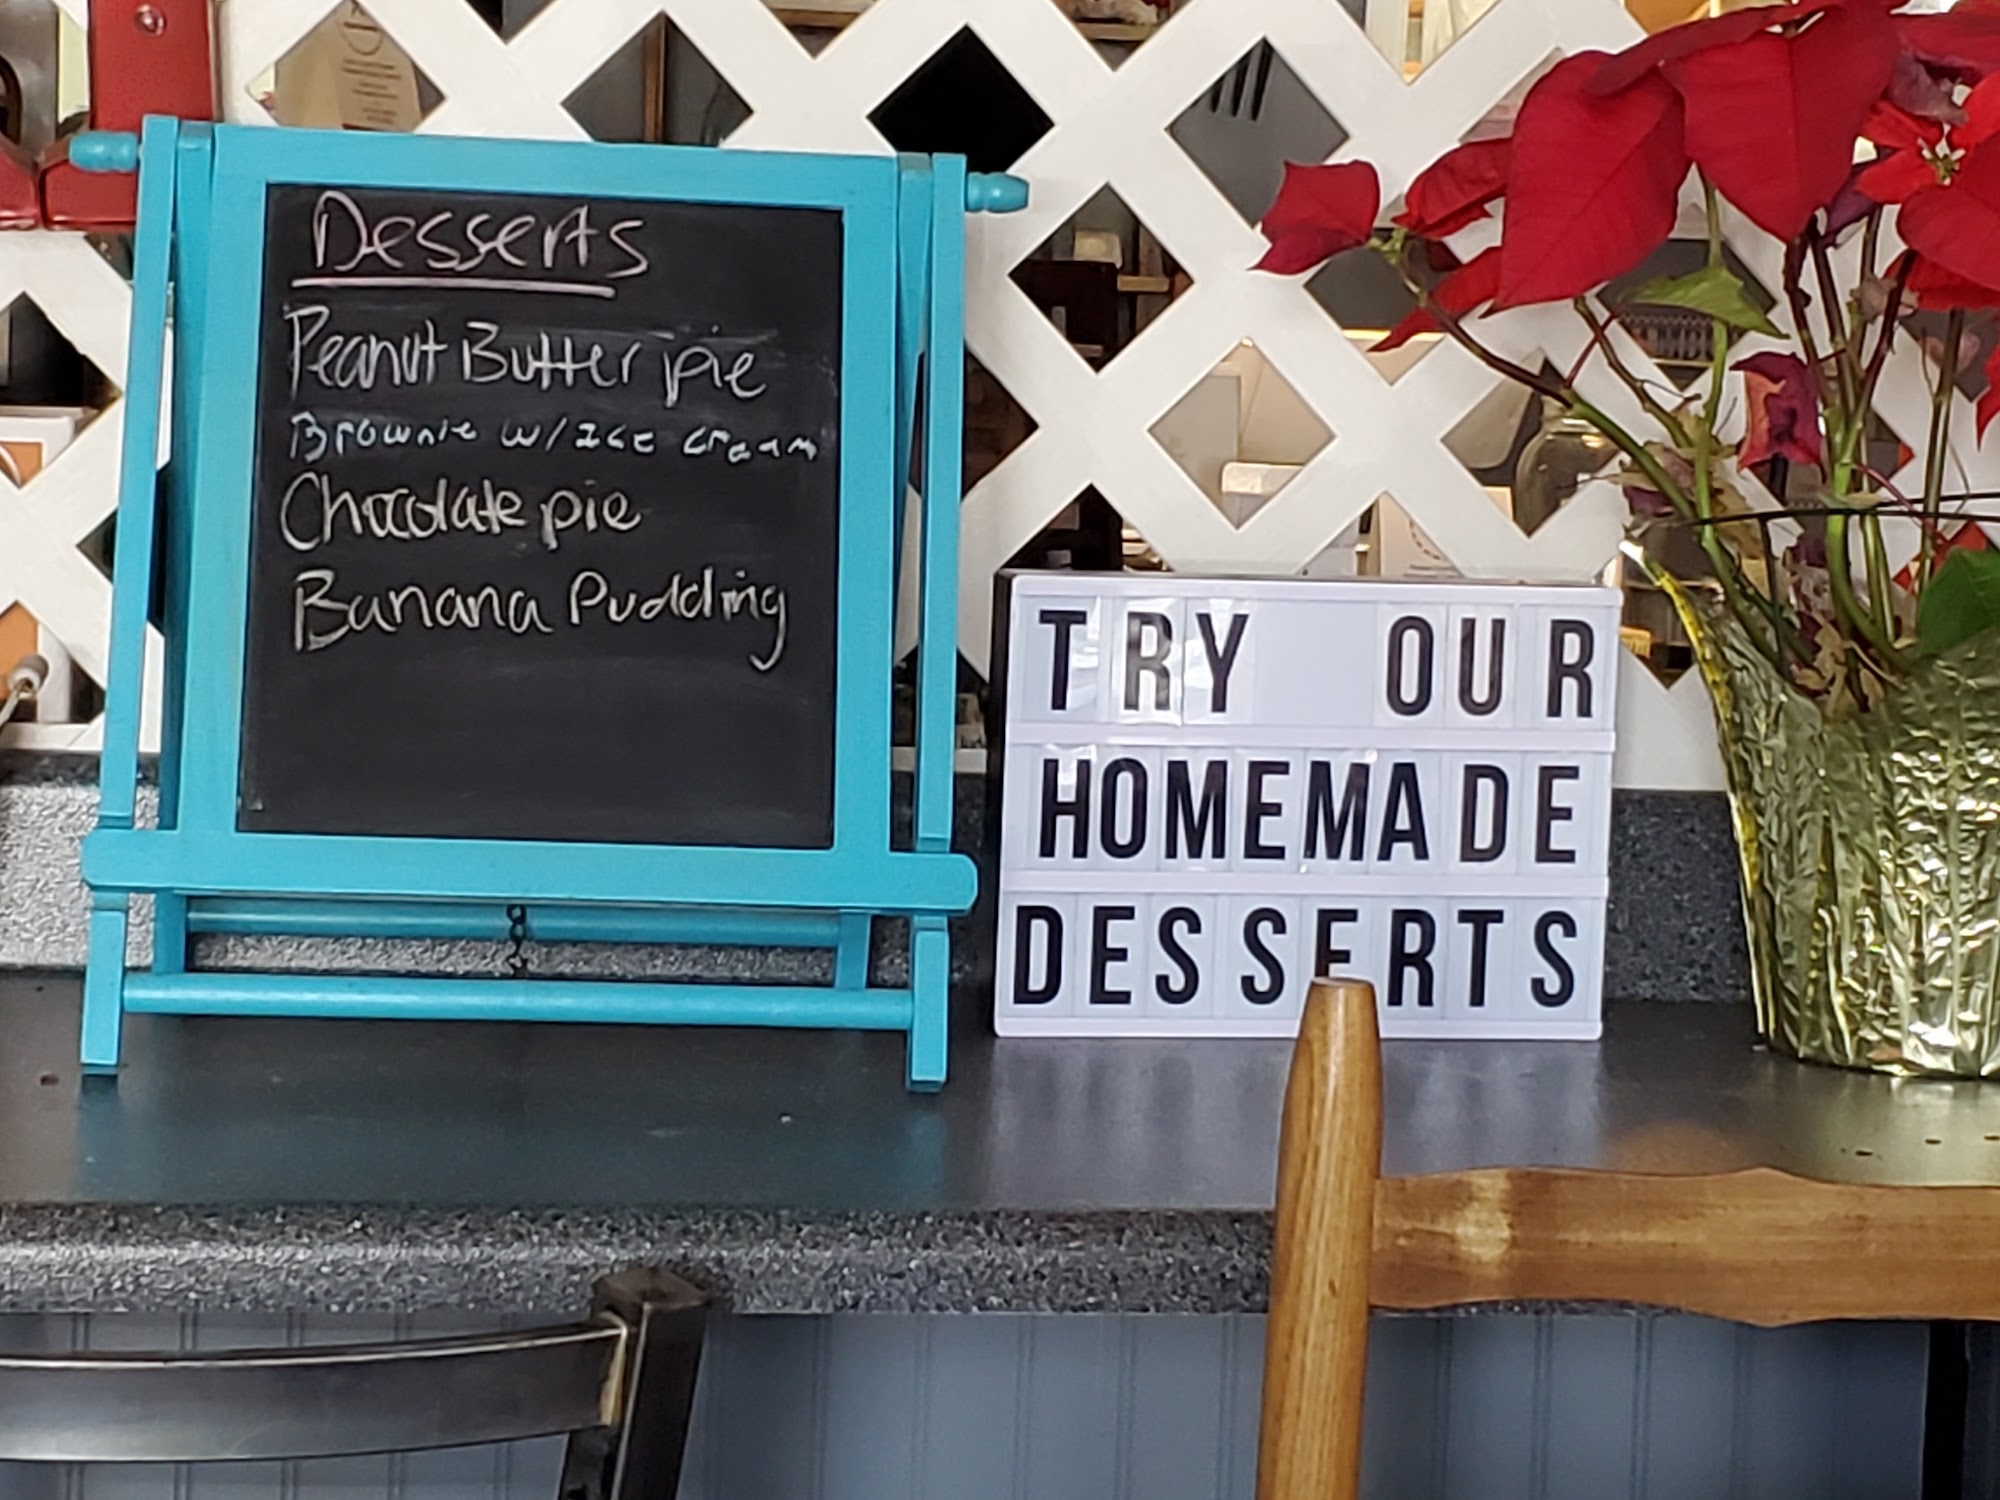 Desserts
Peanut Butter pie
Brownie w/ Ice cream
Chocolate pie
Banana Pudding
TRY OUR
HOMEMADE
DESSERTS